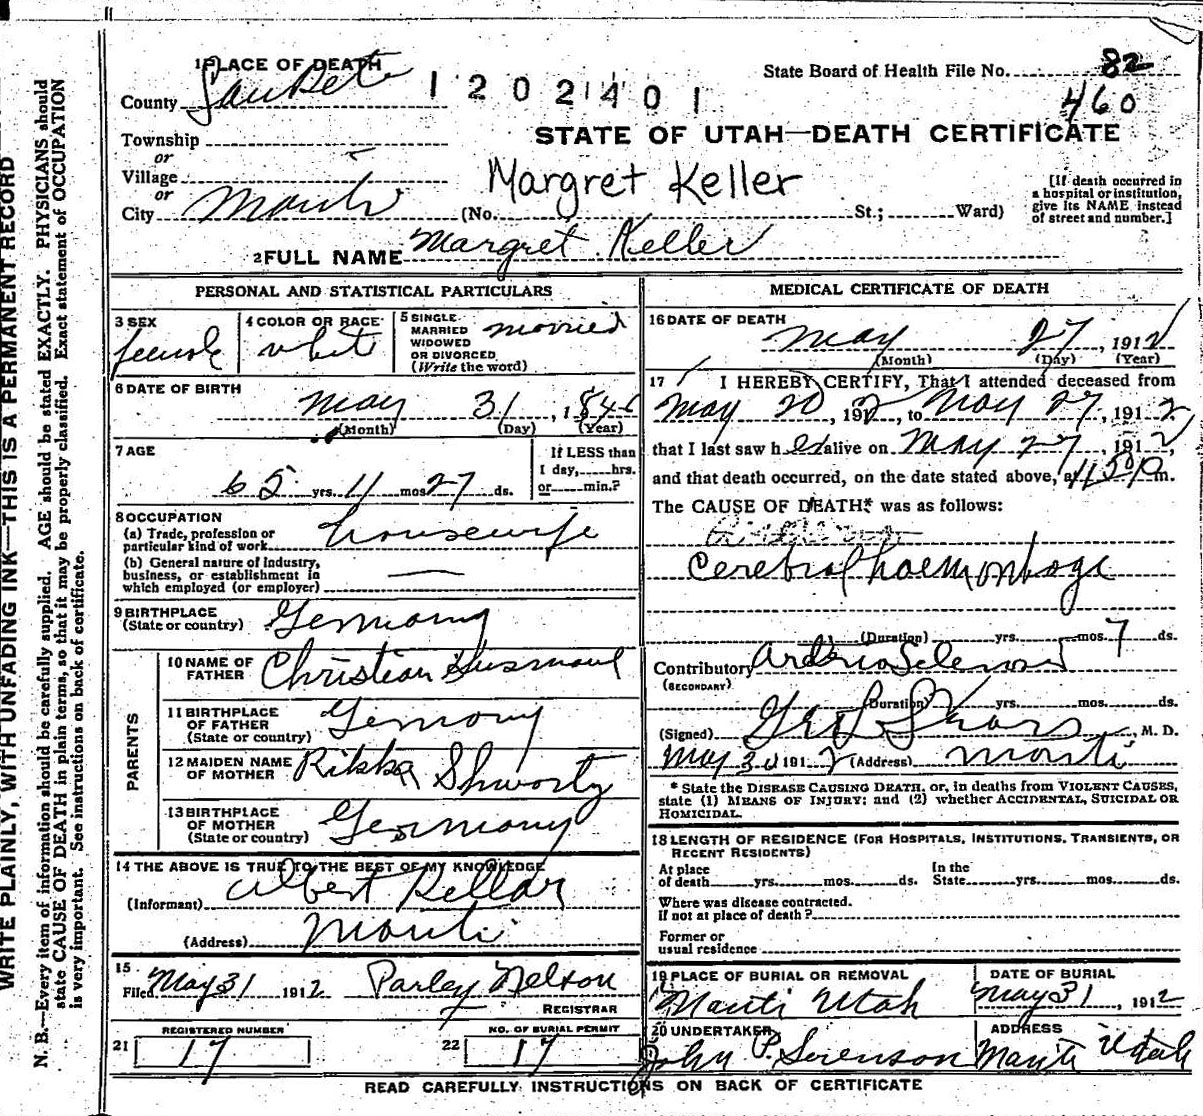 1 PLACE OF DEATH
County SanPete
1 2 0 2 4 0 1
State Board of Health File No. 82
460
Township
or
STATE OF UTAH—DEATH CERTIFICATE
Village
or
Margret Keller
City Manti (No. St.; Ward)
[If death occurred in
a hospital or institution,
give its NAME instead
of street and number.]
2 FULL NAME Margret Keller
PERSONAL AND STATISTICAL PARTICULARS
3 SEX
female
4 COLOR OR RACE
white
5 SINGLE
MARRIED
WIDOWED
OR DIVORCED
(Write the word)
married
6 DATE OF BIRTH
May 31, 1846
(Month) (Day) (Year)
7 AGE
65 yrs. 11 mos 27 ds.
If LESS than
1 day, hrs.
or min.?
8 OCCUPATION
(a) Trade, profession or
particular kind of work housewife
(b) General nature of industry,
business, or establishment in
which employed (or employer)
9 BIRTHPLACE
(State or country) Germany
PARENTS
10 NAME OF
FATHER Christian
11 BIRTHPLACE
OF FATHER
(State or country) Germany
12 MAIDEN NAME
OF MOTHER Rikka Shwortz
13 BIRTHPLACE
OF MOTHER
(State or country) Germany
14 THE ABOVE IS TRUE TO THE BEST OF MY KNOWLEDGE
(Informant) Albert Kellar
(Address) Manti
15
Filed May 31 1912 Parley Nelson
REGISTRAR
21 REGISTERED NUMBER
17
22 NO. OF BURIAL PERMIT
17
MEDICAL CERTIFICATE OF DEATH
16 DATE OF DEATH
May 27, 1912
(Month) (Day) (Year)
17 I HEREBY CERTIFY, That I attended deceased from
May 20, 1912, to May 27, 1912,
that I last saw her alive on May 27, 1912,
and that death occurred, on the date stated above, at 1150 P m.
The CAUSE OF DEATH* was as follows:
Cerebral haemorhage
(Duration) yrs. mos. 7 ds.
Contributory
(SECONDARY)
(Duration) yrs. mos. ds.
(Signed) M. D.
May 30 1912 (Address) Manti
* State the DISEASE CAUSING DEATH, or, in deaths from VIOLENT CAUSES,
state (1) MEANS OF INJURY; and (2) whether ACCIDENTAL, SUICIDAL OR
HOMICIDAL.
18 LENGTH OF RESIDENCE (FOR HOSPITALS, INSTITUTIONS, TRANSIENTS, OR
RECENT RESIDENTS)
At place
of death yrs. mos. ds.
In the
State yrs. mos. ds.
Where was disease contracted.
If not at place of death?
Former or
usual residence
19 PLACE OF BURIAL OR REMOVAL
Manti Utah
DATE OF BURIAL
May 31, 1912
20 UNDERTAKER
John P. Sorenson
ADDRESS
Manti Utah
READ CAREFULLY INSTRUCTIONS ON BACK OF CERTIFICATE
WRITE PLAINLY, WITH UNFADING INK—THIS IS A PERMANENT RECORD
N. B.—Every item of information should be carefully supplied. AGE should be stated EXACTLY. PHYSICIANS should
state CAUSE OF DEATH in plain terms, so that it may be properly classified. Exact statement of OCCUPATION
is very important. See instructions on back of certificate.